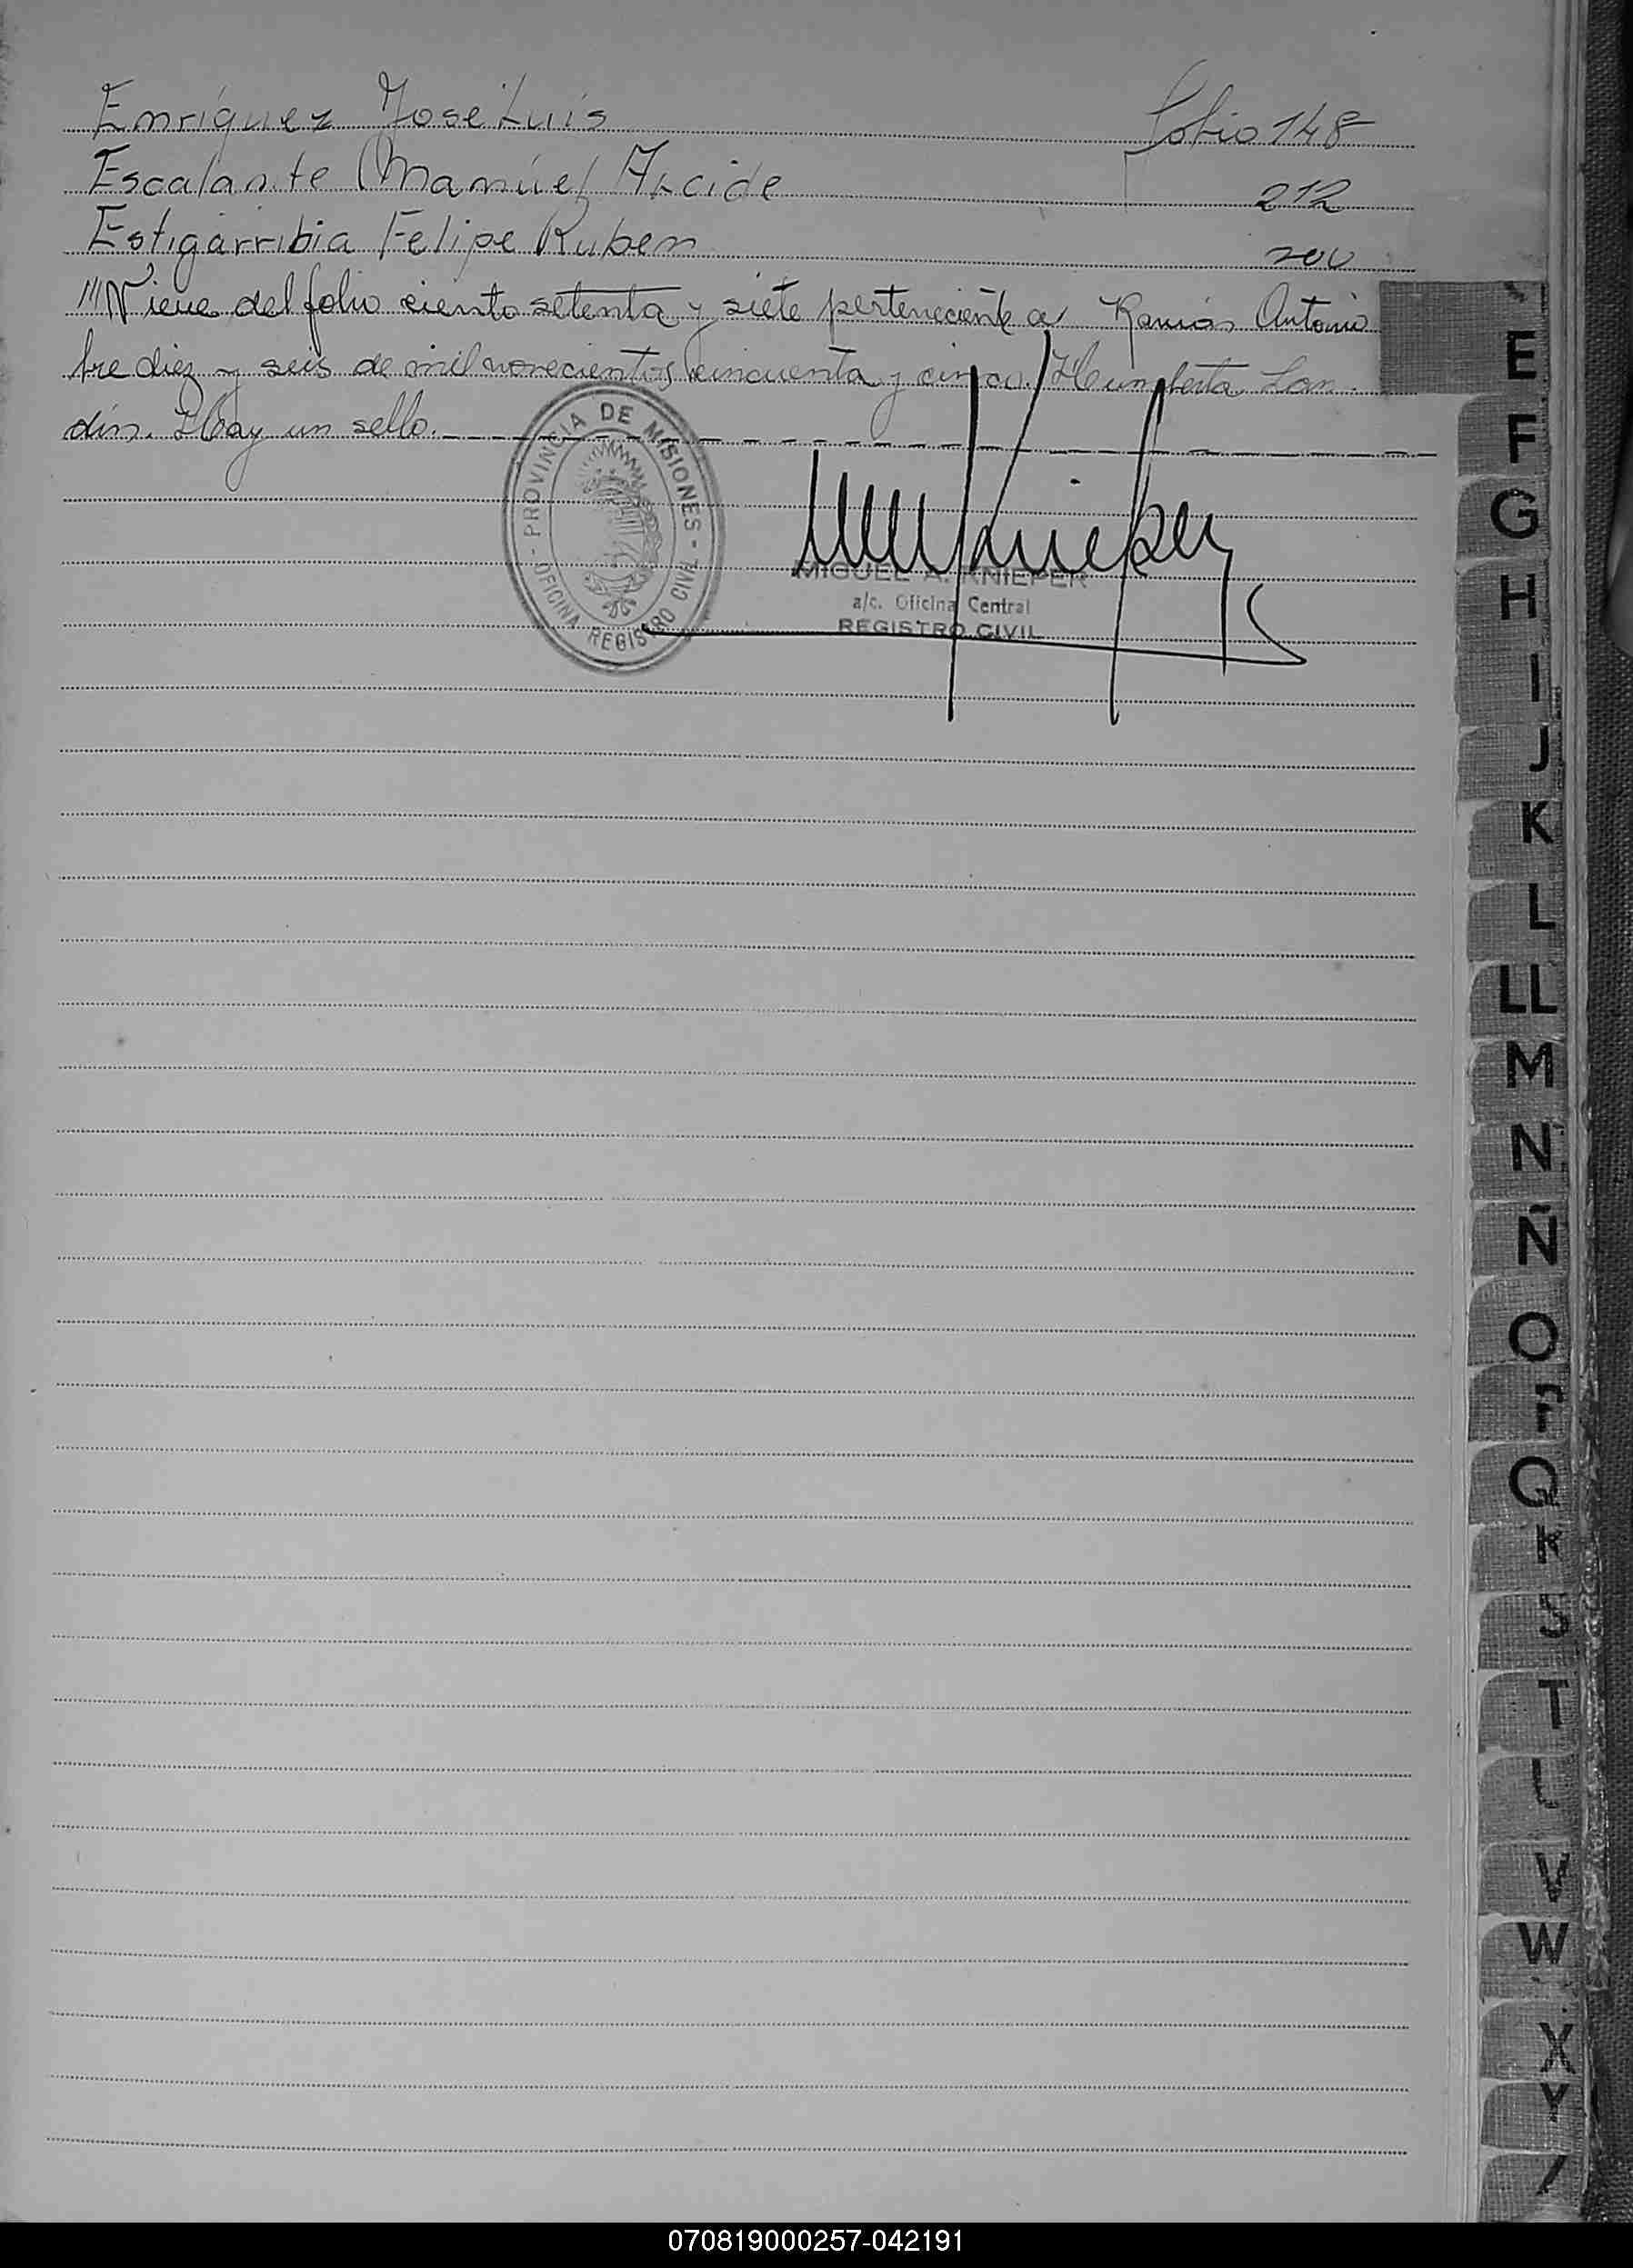 Enriquez José Luis Folio 148
Escalante Manuel Alcide 212
Estigarribia Felipe Ruben 200
///Viene del folio ciento setenta y siete perteneciente a Ramón Antonio
bre diez y seis de mil novecientos cincuenta y cinco. Humberto Lan
din. Hay un sello.
PROVINCIA DE MISIONES
OFICINA REGISTRO CIVIL
MIGUEL A. KNIEPER
a/c. Oficina Central
REGISTRO CIVIL
E
F
G
H
I
J
K
L
LL
M
N
Ñ
O
P
Q
R
S
T
V
W
X
Y
070819000257-042191